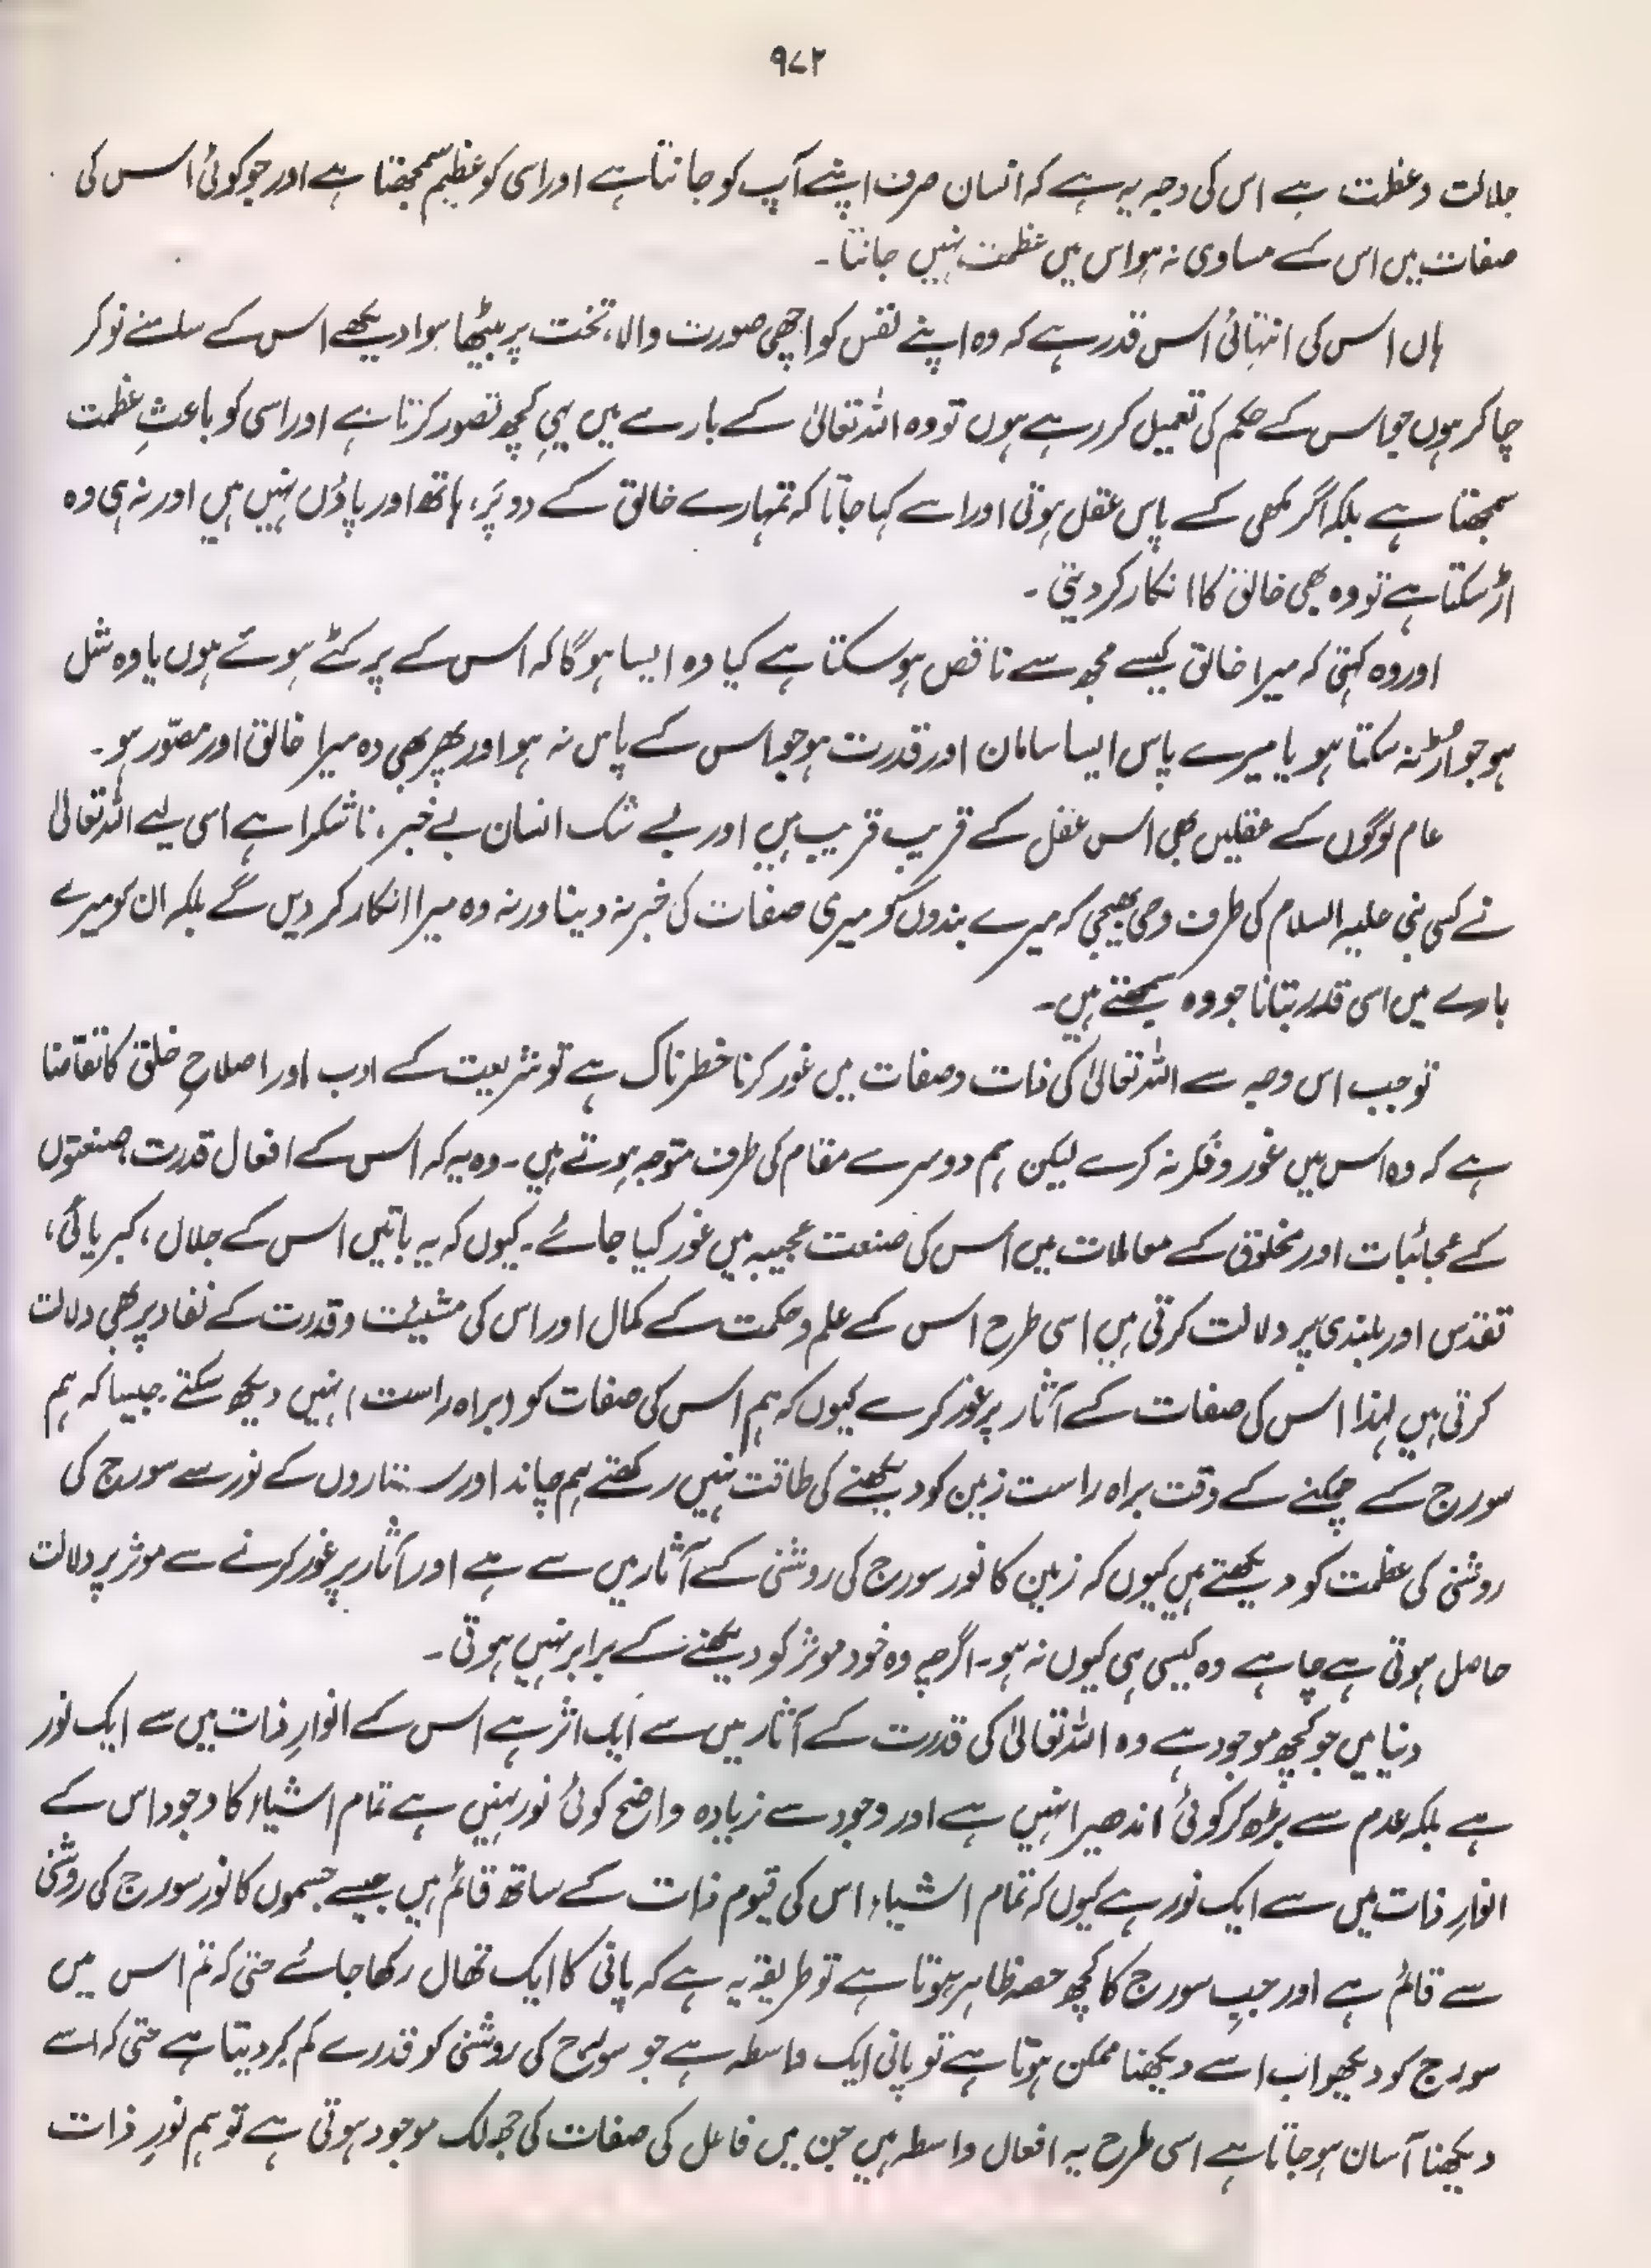 ۹۷۲
جلالت وعظمت ہے اس کی وجہ یہ ہے کہ انسان صرف اپنے آپ کو جانتا ہے اور اسی کو عظیم سمجھتا ہے اور جو کوئی اس کی
صفات میں اس کے مساوی نہ ہو اس میں عظمت نہیں جانتا۔
ہاں اس کی انتہائی اس قدر ہے کہ وہ اپنے نفس کو اچھی صورت والا، تخت پر بیٹھا ہوا دیکھے اس کے سامنے نوکر
چاکر ہوں جو اس کے حکم کی تعمیل کر رہے ہوں تو وہ اللہ تعالیٰ کے بارے میں یہی کچھ تصور کرتا ہے اور اسی کو باعثِ عظمت
سمجھتا ہے بلکہ اگر مکھی کے پاس عقل ہوتی اور اسے کہا جاتا کہ تمہارے خالق کے دو پَر، ہاتھ اور پاؤں نہیں ہیں اور نہ ہی وہ
اڑ سکتا ہے تو وہ بھی خالق کا انکار کر دیتی۔
اور وہ کہتی کہ میرا خالق کیسے مجھ سے ناقص ہو سکتا ہے کیا وہ ایسا ہو گا کہ اس کے پر کٹے ہوئے ہوں یا وہ شل
ہو جو اُڑ نہ سکتا ہو یا میرے پاس ایسا سامان اور قدرت ہو جو اس کے پاس نہ ہو اور پھر بھی وہ میرا خالق اور مصوّر ہو۔
عام لوگوں کے عقلیں بھی اس عقل کے قریب قریب ہیں اور بے شک انسان بے خبر، ناشکرا ہے اسی لیے اللہ تعالیٰ
نے کسی نبی علیہ السلام کی طرف وحی بھیجی کہ میرے بندوں کو میری صفات کی خبر نہ دینا ورنہ وہ میرا انکار کر دیں گے بلکہ ان کو میرے
بارے میں اسی قدر بتانا جو وہ سمجھتے ہیں۔
تو جب اس وجہ سے اللہ تعالیٰ کی ذات وصفات میں غور کرنا خطرناک ہے تو شریعت کے ادب اور اصلاحِ خلق کا تقاضا
ہے کہ وہ اس میں غور و فکر نہ کرے لیکن ہم دوسرے مقام کی طرف متوجہ ہوتے ہیں۔ وہ یہ کہ اس کے افعال قدرت، صنعتوں
کے عجائبات اور مخلوق کے معاملات میں اس کی صنعت عجیبہ میں غور کیا جائے۔ کیوں کہ یہ باتیں اس کے جلال، کبریائی،
تقدس اور بلندی پر دلالت کرتی ہیں اسی طرح اس کے علم وحکمت کے کمال اور اس کی مشیئت وقدرت کے نفاد پر بھی دلالت
کرتی ہیں لہٰذا اس کی صفات کے آثار پر غور کرے کیوں کہ ہم اس کی صفات کو (براہ راست) نہیں دیکھ سکتے۔ جیسا کہ ہم
سورج کے چمکنے کے وقت براہ راست زمین کو دیکھنے کی طاقت نہیں رکھتے ہم چاند اور ستاروں کے نور سے سورج کی
روشنی کی عظمت کو دیکھتے ہیں کیوں کہ زمین کا نور سورج کی روشنی کے آثار میں سے ہے اور آثار پر غور کرنے سے موثر پر دلالت
حاصل ہوتی ہے چاہے وہ کیسی ہی کیوں نہ ہو۔ اگرچہ وہ خود موثر کو دیکھنے کے برابر نہیں ہوتی۔
دنیا میں جو کچھ موجود ہے وہ اللہ تعالیٰ کی قدرت کے آثار میں سے ایک اثر ہے اس کے انوارِ ذات میں سے ایک نور
ہے بلکہ عدم سے بڑھ کر کوئی اندھیرا نہیں ہے اور وجود سے زیادہ واضح کوئی نور نہیں ہے تمام اشیاء کا وجود اس کے
انوارِ ذات میں سے ایک نور ہے کیوں کہ تمام اشیاء اس کی قیوم ذات کے ساتھ قائم ہیں جیسے جسموں کا نور سورج کی روشنی
سے قائم ہے اور جب سورج کا کچھ حصہ ظاہر ہوتا ہے تو طریقہ یہ ہے کہ پانی کا ایک تھال رکھا جائے حتیٰ کہ تم اس میں
سورج کو دیکھو اب اسے دیکھنا ممکن ہوتا ہے تو پانی ایک واسطہ ہے جو سورج کی روشنی کو قدرے کم کر دیتا ہے حتیٰ کہ اسے
دیکھنا آسان ہو جاتا ہے اسی طرح یہ افعال واسطہ ہیں جن میں فاعل کی صفات کی جھلک موجود ہوتی ہے تو ہم نورِ ذات